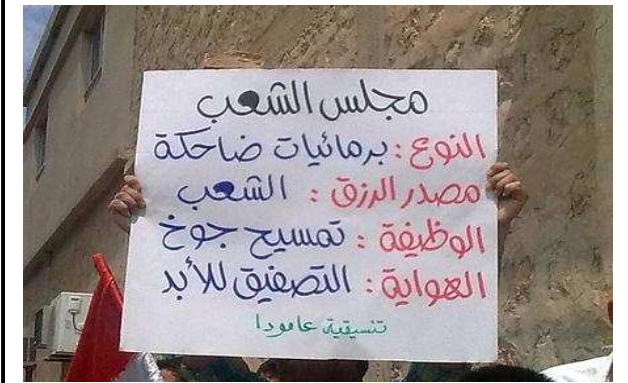 مجلس الشعب
النوع : برمائيات ضاحكة
مصدر الرزق : الشعب
الوظيفة : تمسيح جوخ
الهواية : التصفيق للأبد
تنسيقية عامودا